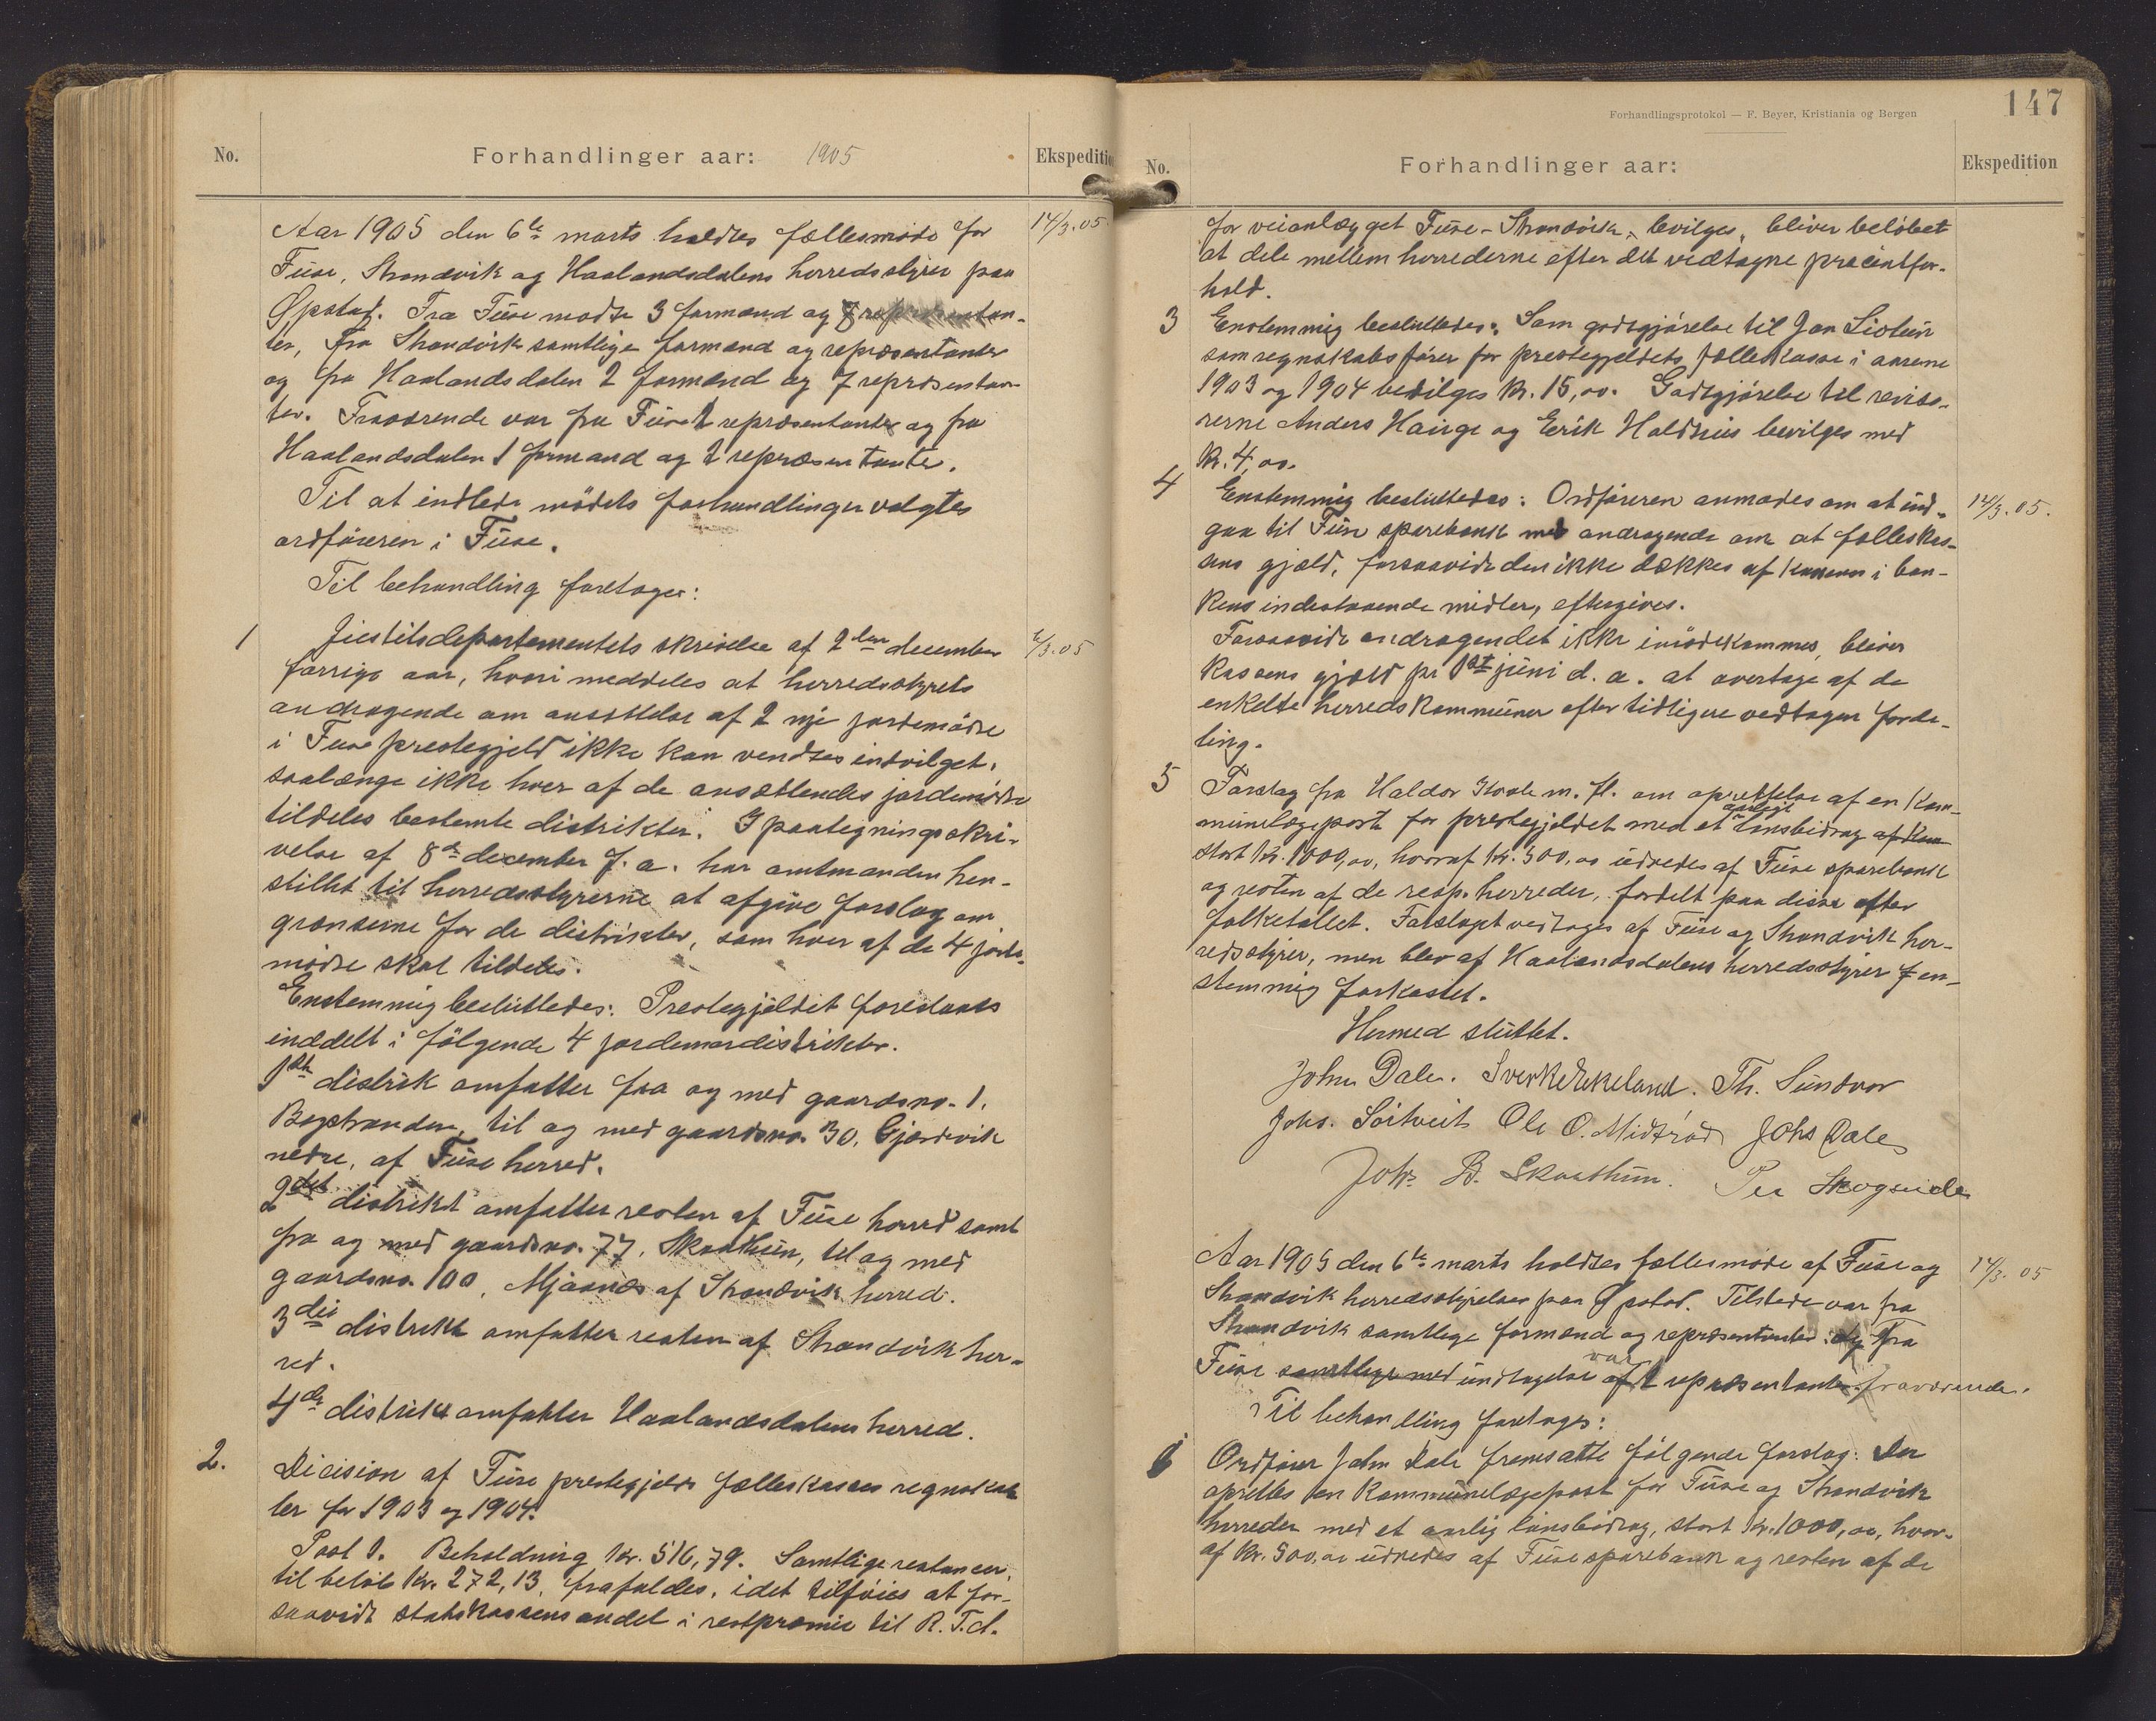 No.
Forhandlinger aar: 1905
Ekspeditio
Aar 1905 den 6te marts holdtes fællesmøde for
14/3.05.
Fuse, Strandvik og Haalandsdalens herredsstyrer paa
Øpstad. Fra Fuse mødte 3 formænd og 7 repræsentan-
ter, fra Strandvik samtlige formænd og repræsentanter
og fra Haalandsdalen 2 formænd og 7 repræsentan-
ter. Fraværende var fra Fuse 2 repræsentanter og fra
Haalandsdalen 1 formand og 2 repræsentanter.
Til at indlede mødets forhandlinger valgtes
ordføreren i Fuse.
Til behandling foretoges:
1
Justitsdepartementets skrivelse af 2den december
/3.05
forrige aar, hvori meddeles at herredsstyrets
andragende om ansættelse af 2 nye jordemødre
i Fuse prestegjeld ikke kan ventes indvilget,
saalænge ikke hver af de ansættendes jordemødre
tildeles bestemte distrikter. I paategningsskri-
velse af 8de december f. a. har amtmanden hen-
stillet til herredsstyrerne at afgive forslag om
grænserne for de distrikter, som hver af de 4 jorde-
mødre skal tildeles.
Enstemmig besluttedes: Prestegjeldet foreslaaes
inddelt i følgende 4 jordemordistrikter.
1ste distrik omfatter fra og med gaardsno. 1,
Bogstranden, til og med gaardsno. 30, Gjerdevik
nedre, af Fuse herred.
2det distrikt omfatter resten af Fuse herred samt
fra og med gaardsno. 77, Skaathun, til og med
gaardsno. 100, Mjaanes af Strandvik herred.
3die distrikt omfatter resten af Strandvik her-
red.
4de distrikt omfatter Haalandsdalens herred.
2.
Dicision af Fuse prestegjelds fælleskasses regnskab-
ler for 1903 og 1904.
Post 1. Beholdning kr. 516,79. Samtlige restancer,
til beløb kr. 272,13, frafaldes, idet tilføies at for-
saavidt statskassens andel i restpræmie til R. T. d.
147
Forhandlingsprotokol — F. Beyer, Kristiania og Bergen
No.
Forhandlinger aar:
Ekspedition
for veianlægget Fuse-Strandvik, bevilges, bliver beløbet
at dele mellem herrederne efter det vedtagne procentfor-
hold.
3
Enstemmig besluttedes: Som godtgjørelse til Jon Liotun
som regnskabsfører for prestegjeldets fælleskasse i aarene
1903 og 1904 bevilges kr. 15,00. Godtgjørelse til reviso-
rerne Anders Hauge og Eerik Holdhus bevilges med
kr. 4,00.
4
Enstemmig besluttedes: Ordføreren anmodes om at ind-
14/3.05.
gaa til Fuse sparebank med andragende om at fælleskas-
sens gjæld, forsaavidt den ikke dækkes af kassens i ban-
kens indestaaende midler, eftergives.
Forsaavidt andragendet ikke imødekommes, bliver
kassens gjæld pr 1st juni d. a. at overtage af de
enkelte herredskommuner efter tidligere vedtagen forde-
ling.
5
Forslag fra Haldor m. fl. om oprettelse af en kom-
munelægepost for prestegjeldet med et aarligt lønsbidrag af kom
stort kr. 1000,00, hvoraf kr. 500,00 udredes af Fuse sparebank
og resten af de resp. herreder, fordelt paa disse efter
folketallet. Forslaget vedtages af Fuse og Strandvik her-
redsstyrer, men blev af Haalandsdalens herredsstyrer en-
stemmig forkastet.
Hermed sluttet.
John Dale. Sverke Eikeland. Th. Sundvor
Johs. Söitveit Ole O. Midtröd Johs Dale
Johs. B. Skaathun. Per Skogseide
Aar 1905 den 6te marts holdtes fællesmøde af Fuse og
14/3.05
Strandvik herredsstyrelser paa Øpstad. Tilstede var fra
Strandvik samtlige formænd og repræsentanter. og Fra
Fuse samtlige med undtagelse af var 2 repræsentanter fraværende.
Til behandling foretoges:
6
Ordfører John Dale fremsatte følgende forslag: Der
oprettes en kommunelægepost for Fuse og Strandvik
herreder med et aarlig lønsbidrag, stort kr. 1000,00, hvor-
af kr. 500,00 udredes af Fuse sparebank og resten af de